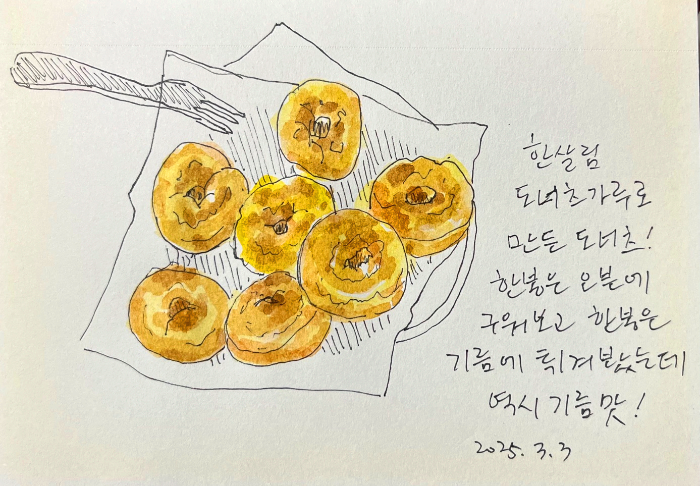 한살림
도너츠가루로
만든 도너츠!
한봉은 오븐에
구워보고 한봉은
기름에 튀겨봤는데
역시 기름 맛!
2025. 3. 3